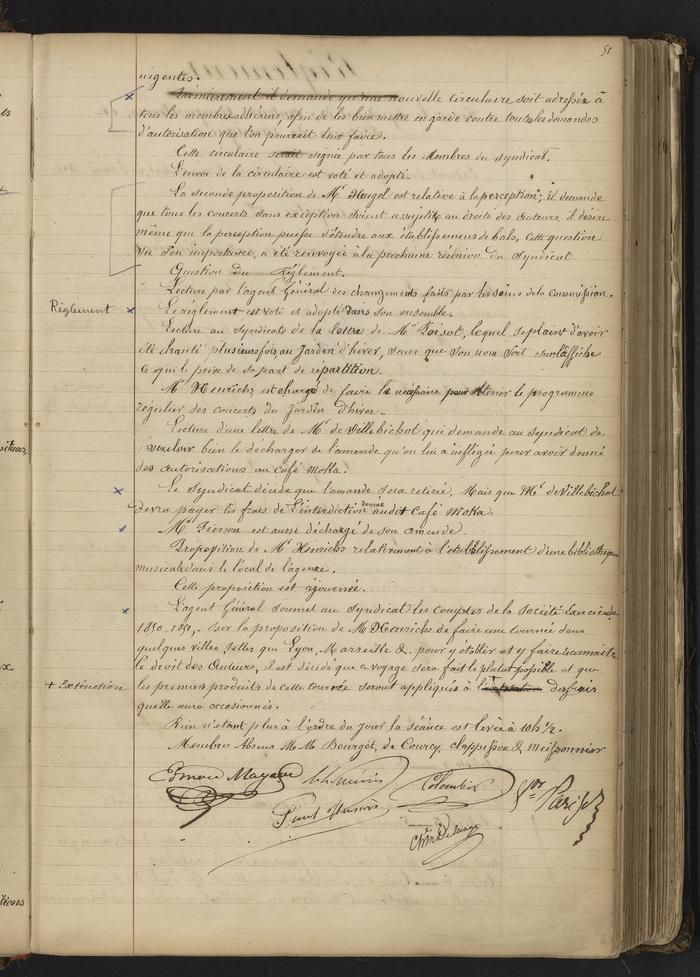 51
urgentes.
Premièrement il demande qu'une nouvelle circulaire soit adressée à
tous les membres adhérens, afin de les bien mettre en garde contre toutes les demandes
d'autorisation que l'on pourrait leur faire.
Cette circulaire serait signée par tous les Membres du Syndicat.
L'envoi de la circulaire est voté et adopté.
La seconde proposition de Mr Heugel est relative à la perception; il demande
que tous les concerts sans exception soient assujettis au droits des auteurs, il désire
même que la perception puisse s'étendre aux établissemens de bals, Cette question
vu son importance, a été renvoyée à la prochaine réunion du Syndicat
Question du Réglement.
Lecture par l'agent Général des changements faits par les soins de la Commission.
Réglement
Le réglement est voté et adopté dans son ensemble.
Lecture au Syndicats de la lettre de Mr Loisot, lequel se plaint d'avoir
été chanté plusieurs fois au Jardin d'hiver, sans que son nom soit sur l'affiche
ce qui le prive de sa part de répartition.
Mr Henrichs est chargé de faire le nécessaire pour obtenir le programme
régulier des concerts du Jardin d'hiver.
Lecture d'une lettre de Mr de Villebichot qui demande au Syndicat de
vouloir bien le décharger de l'amende qu'on lui a infligée pour avoir donné
des autorisations au Café Moka.
Le Syndicat décide que l'amande sera retirée, Mais que Mr de Villebichot
devra payer les frais de l'interdiction audit Café Moka.
Mr Pierson est aussi déchargé de son amende.
Proposition de Mr Henrichs relativement à l'établissement d'une bibliothèque
musicale dans le local de l'agence.
Cette proposition est ajournée.
L'agent Général soumet au Syndicat les comptes de la Société
1850-1851, Sur la proposition de Mr Henrichs de faire une tournée dans
quelques villes telles que Lyon, Marseille &, pour y établir et y faire connaitre
le droit des Auteurs, il est décidé que ce voyage sera fait le plutôt possible et que
+ Exténction
les premiers produits de cette tournée seront appliqués à l' des frais
qu'elle aura occasionnés.
Rien n'étant plus à l'ordre du Jour la séance est levée à 10h ½.
Membres Absens M. M. Bourget, de Courcy, Clappisson & Meissonnier
Colombier
Paul Henrion
Vor Parizot